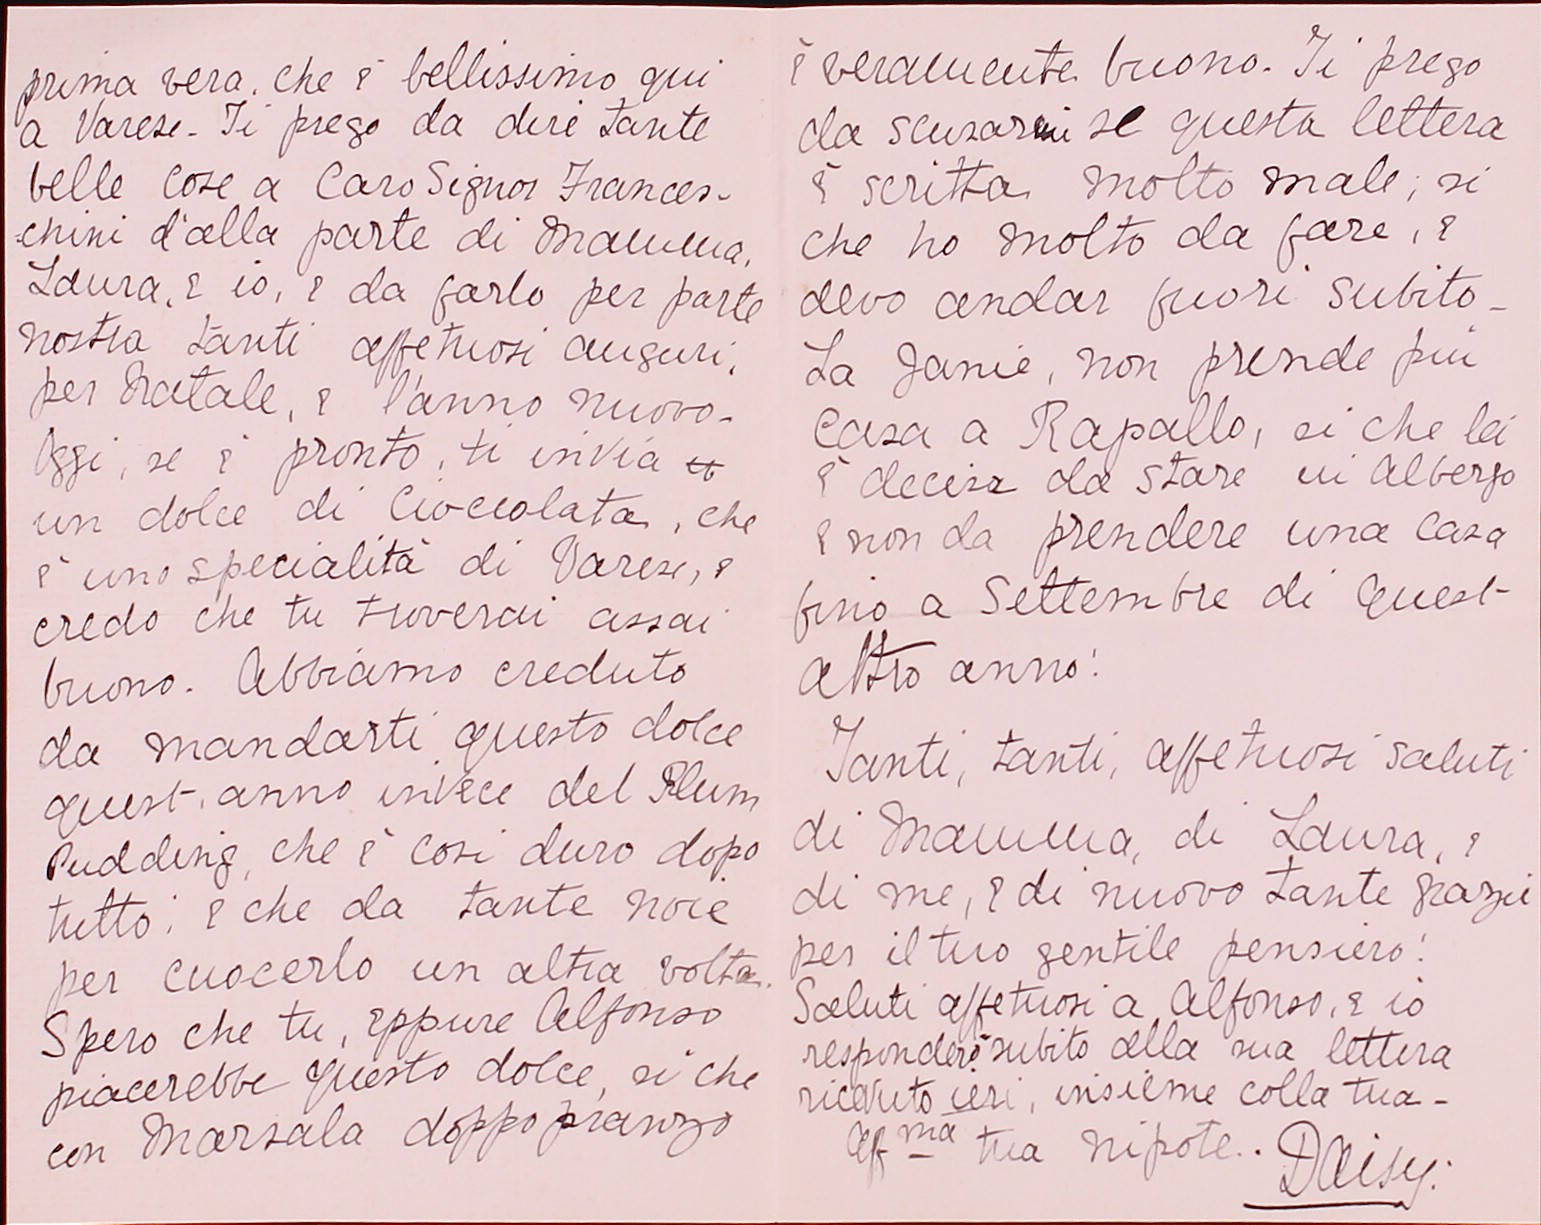 prima vera. che è bellissimo qui
a Varese - Ti prego da dire tante
belle cose a Caro Signor Frances-
-chini d'alla parte di Mamma,
Laura, e io, e da farlo per parte
nostra tanti affetuosi auguri,
per Natale, e l'anno nuovo -
Oggi, se è pronto, ti invia
un dolce di Cioccolata, che
è uno specialità di Varese, e
credo che tu troverai assai
buono. Abbiamo creduto
da mandarti questo dolce
quest, anno invece del Plum
Pudding, che è cosi duro dopo
tutto; e che da tante noie
per cuocerlo un altra volta.
Spero che tu, eppure Alfonso
piacerebbe questo dolce, si che
con Marsala doppo pranzo
è veramente buono - Ti prego
da scusarmi se questa lettera
è scritta molto male; si
che ho molto da fare, e
devo andar fuori subito -
La Janie, non prende piu
casa a Rapallo, si che lei
è decisa da stare in Albergo
e non da prendere una casa
fino a Settembre di quest-
altro anno!
Tanti, tanti, affetuosi saluti
di Mamma, di Laura, e
di me, e di nuovo tante grazie
per il tuo gentile pensiero!
Saluti affetuosi a Alfonso, e io
responderò subito alla sua lettera
ricevuto ieri, insieme colla tua -
Aff ma tua nipote.. Daisy.